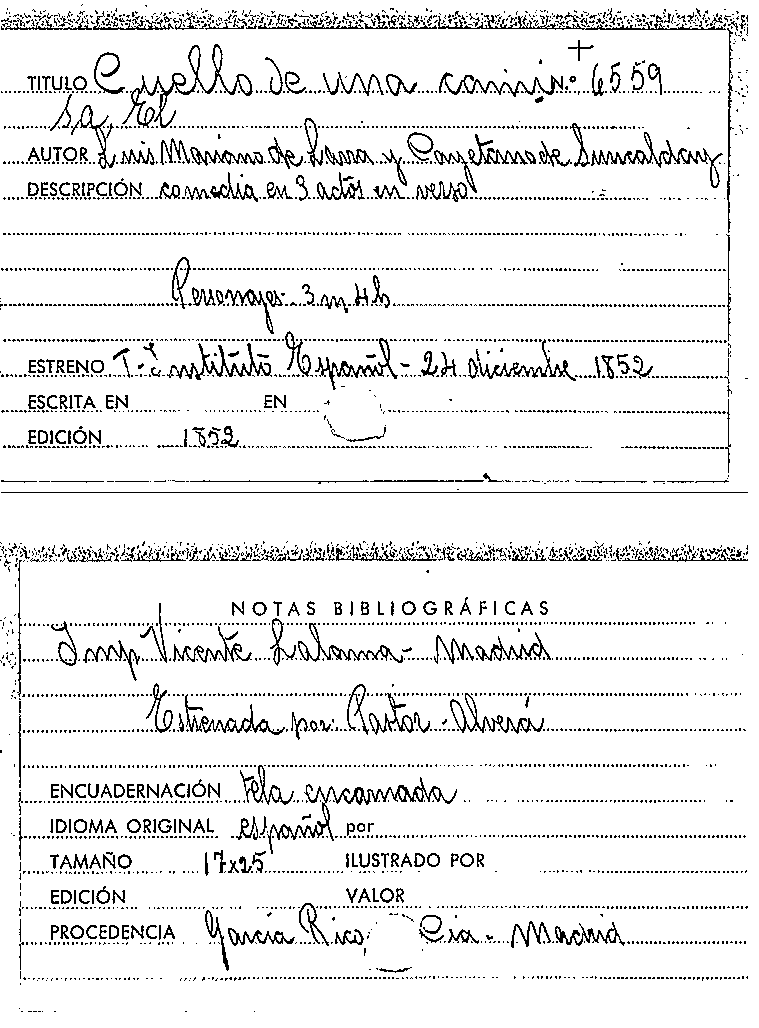 TITULO Cuello de una cami N.º 6559
sa, El
AUTOR Luis Mariano de Larra y Cayetano de Suricalday
DESCRIPCIÓN comedia en 3 actos en verso
Personajes 3 m. 4 h
ESTRENO T. Instituto Español - 24 diciembre 1852
ESCRITA EN EN
EDICIÓN 1852
NOTAS BIBLIOGRÁFICAS
Imp. Vicente Lalama - Madrid
Estrenada por: Pastor - Alverá
ENCUADERNACIÓN tela encarnada
IDIOMA ORIGINAL español por
TAMAÑO 17x25 ILUSTRADO POR
EDICIÓN VALOR
PROCEDENCIA García Rico Cia - Madrid